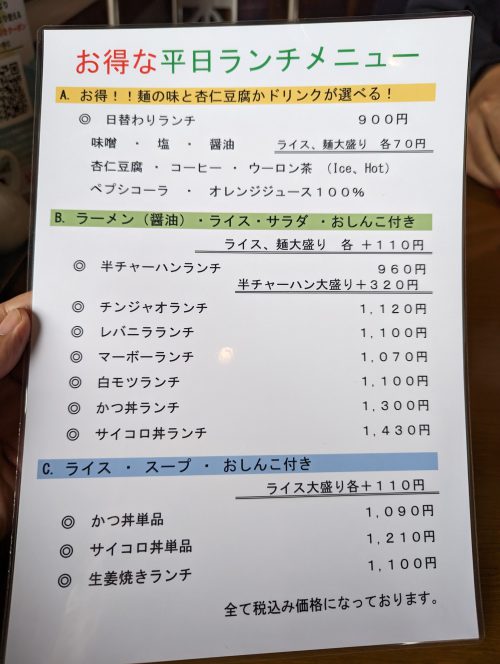 お得な平日ランチメニュー
A. お得！！麺の味と杏仁豆腐かドリンクが選べる！
◎ 日替わりランチ ９００円
味噌 ・ 塩 ・ 醤油 ライス、麺大盛り 各７０円
杏仁豆腐 ・ コーヒー ・ ウーロン茶 （Ice、Hot）
ペプシコーラ ・ オレンジジュース１００％
B. ラーメン（醤油）・ライス・サラダ ・おしんこ付き
ライス、麺大盛り 各 ＋１１０円
◎ 半チャーハンランチ ９６０円
半チャーハン大盛り＋３２０円
◎ チンジャオランチ １,１２０円
◎ レバニラランチ １,１００円
◎ マーボーランチ １,０７０円
◎ 白モツランチ １,１００円
◎ かつ丼ランチ １,３００円
◎ サイコロ丼ランチ １,４３０円
C. ライス ・ スープ ・ おしんこ付き
ライス大盛り各＋１１０円
◎ かつ丼単品 １,０９０円
◎ サイコロ丼単品 １,２１０円
◎ 生姜焼きランチ １,１００円
全て税込み価格になっております。